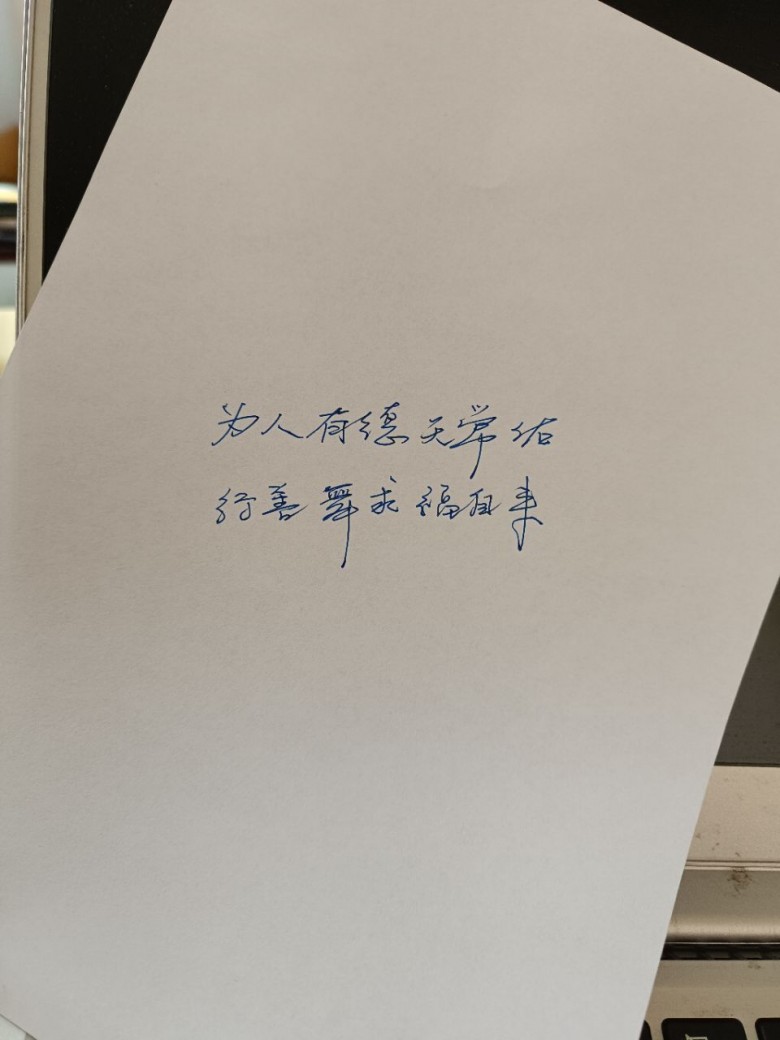 为人有德天常佑
行善舞求福自来